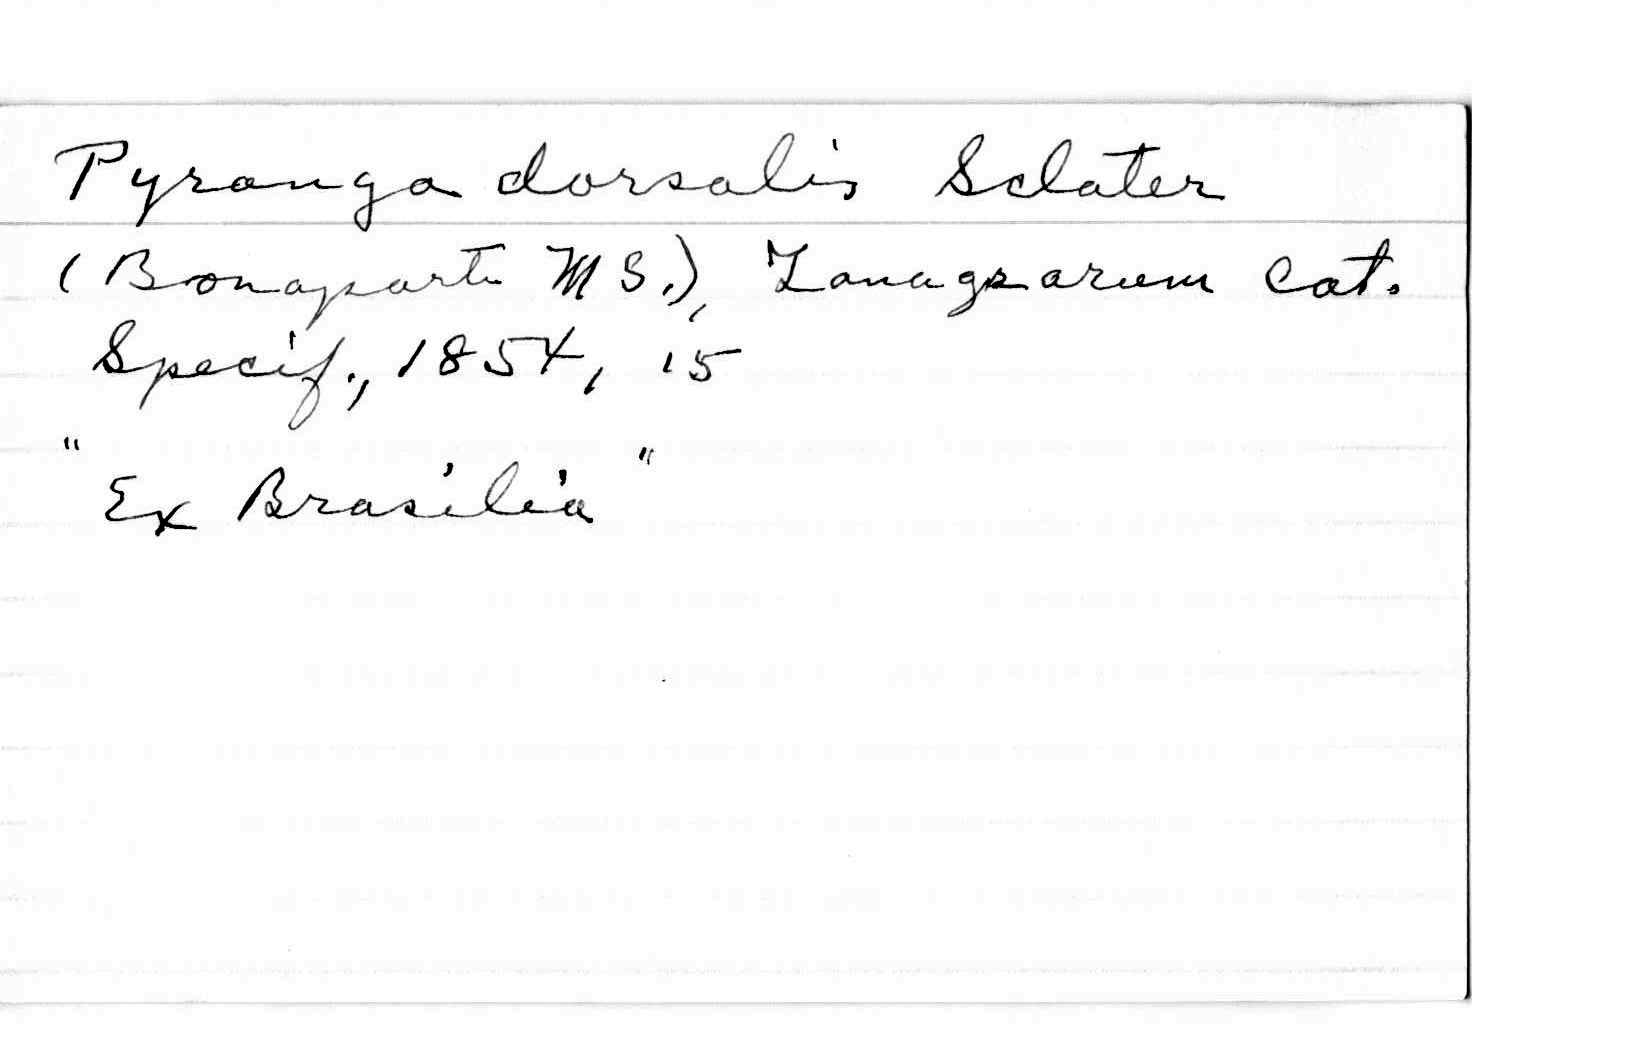 Pyranga dorsalis Sclater
(Bonaparte MS.), Tanagrarum Cat.
Specif., 1854, 15
"Ex Brasilia"